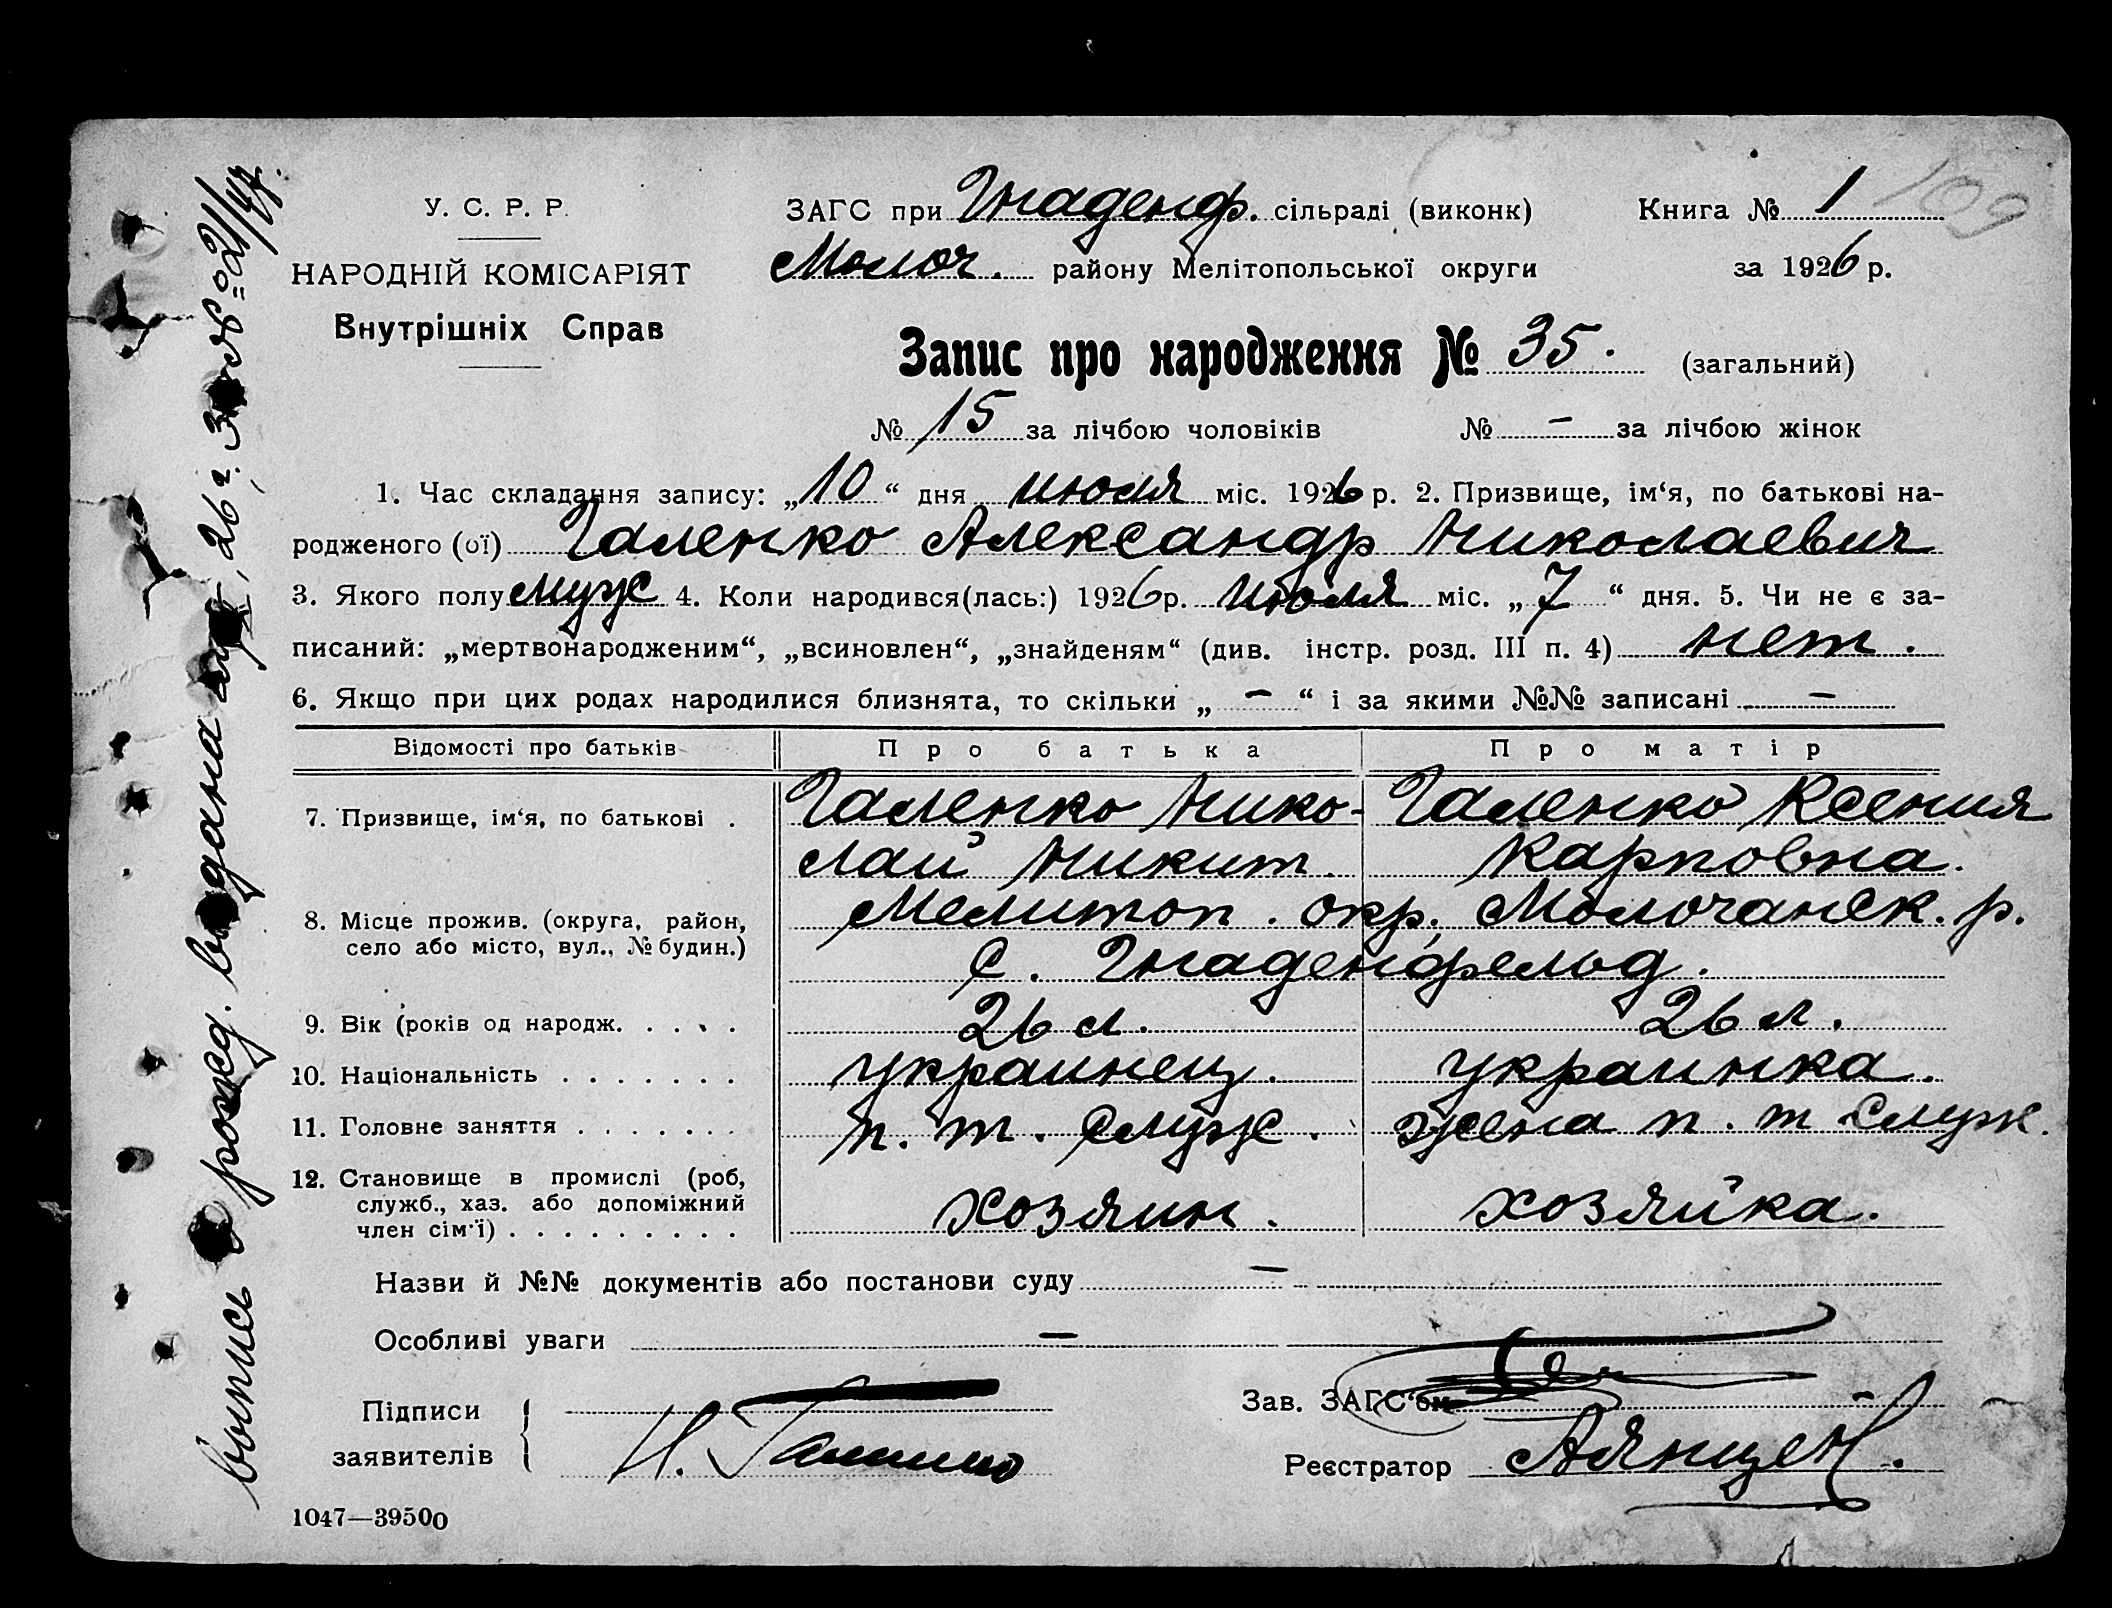 У. С. Р. Р.
НАРОДНІЙ КОМІСАРІЯТ
Внутрішніх Справ
ЗАГС при Гнаденф. сільраді (виконк)
Молоч. району Мелітопольської округи
Книга № 1
109
за 1926 р.
Запис про народження № 35. (загальний)
№ 15 за лічбою чоловіків № – за лічбою жінок
1. Час складання запису: „10“ дня июля міс. 1926 р. 2. Призвище, ім‘я, по батькові на-
родженого (ої) Галенко Александр Николаевич
3. Якого полу муж 4. Коли народився(лась:) 1926 р. июля міс. „7“ дня. 5. Чи не є за-
писаний: „мертвонародженим“, „всиновлен“, „знайденям“ (див. інстр. розд. III п. 4) нет.
6. Якщо при цих родах народилися близнята, то скільки „–“ і за якими №№ записані –
Відомості про батьків Про батька Про матір
7. Призвище, ім‘я, по батькові . Галенко Нико- Галенко Ксения
лай Никит. Карповна.
8. Місце прожив. (округа, район, Мелитоп. окр. Молочанск. р.
село або місто, вул., № будин.) с. Гнаденфельд.
9. Вік (років од народж. . . . . 26 л. 26 л.
10. Національність . . . . . . . украинец. украинка.
11. Головне заняття . . . . . . . п. т. служ. жена п. т служ.
12. Становище в промислі (роб,
служб., хаз. або допоміжний хозяин. хозяйка.
член сім‘ї) . . . . . . . . .
Назви й №№ документів або постанови суду –
Особливі уваги –
Підписи
заявителів
Н. Галенко
Зав. ЗАГС‘ом
Реєстратор АЯнцен.
1047—39500
выпись о рожд. выдана 26 г. за №